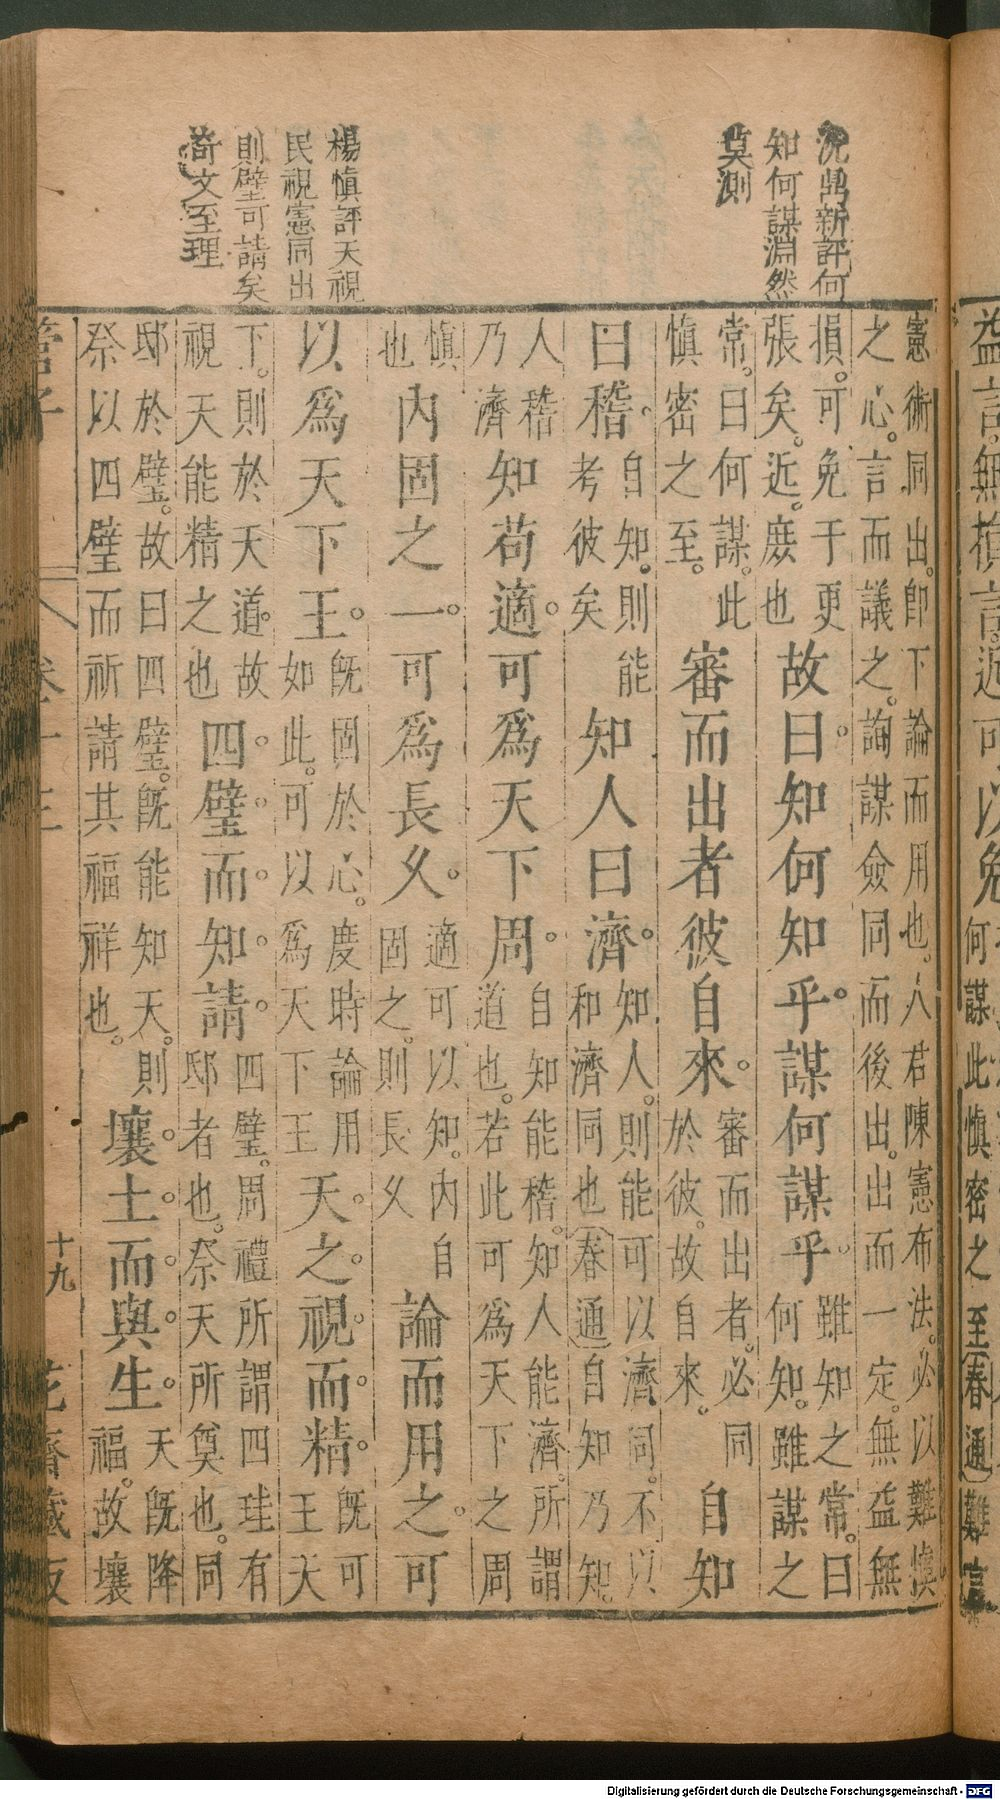 益言無損言近可以免
何謀此慎密之至春通難言
沈鼎新評何
知何謀淵然
莫測
楊慎評天視
民視憲同出
則壁可請矣
奇文至理
憲術同出。即下論而用也。人君陳憲布法。必以難慎
之心。言而議之。詢謀僉同而後出。出而一定。無益無
損。可免于更
張矣。近。庶也
故曰。知何知乎。謀何謀乎。
雖知之常。曰
何知。雖謀之
常。曰何謀。此
慎密之至。
審而出者彼自來。
審而出者。必同
於彼。故自來。
自知
曰稽。
自知。則能
考彼矣
知人曰濟。
知人。則能可以濟同。不以
和濟同也春通自知乃知。
人稽
乃濟
知苟適。可爲天下周。
自知能稽。知人能濟。所謂
道也。若此可爲天下之周
慎
也
內固之一。可爲長久。
適可以知。內自
固之。則長久
論而用之。可
以爲天下王。
既固於心。度時論用
如此。可以爲天下王
天之視而精。
既可
王天
下。則於天道。故
視天能精之也
四璧而知請。
四璧。周禮所謂四珪有
邸者也。祭天所奠也。同
邸於璧。故曰四璧。既能知天。則
祭以四璧而祈請其福祥也。
壤土而與生。
天既降
福。故壤
管子
卷十三
十九
花齋藏板
Digitalisierung gefördert durch die Deutsche Forschungsgemeinschaft - DFG